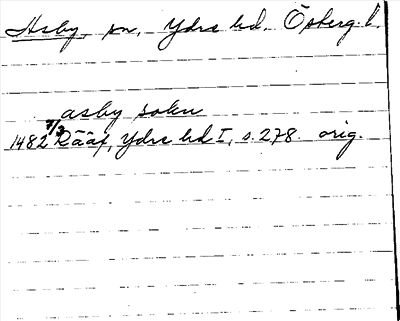 Asby, sn, Ydre hd. Österg. l.
asby sokn
1482 7/3 Rääf, Ydre hd I, s. 278. orig.